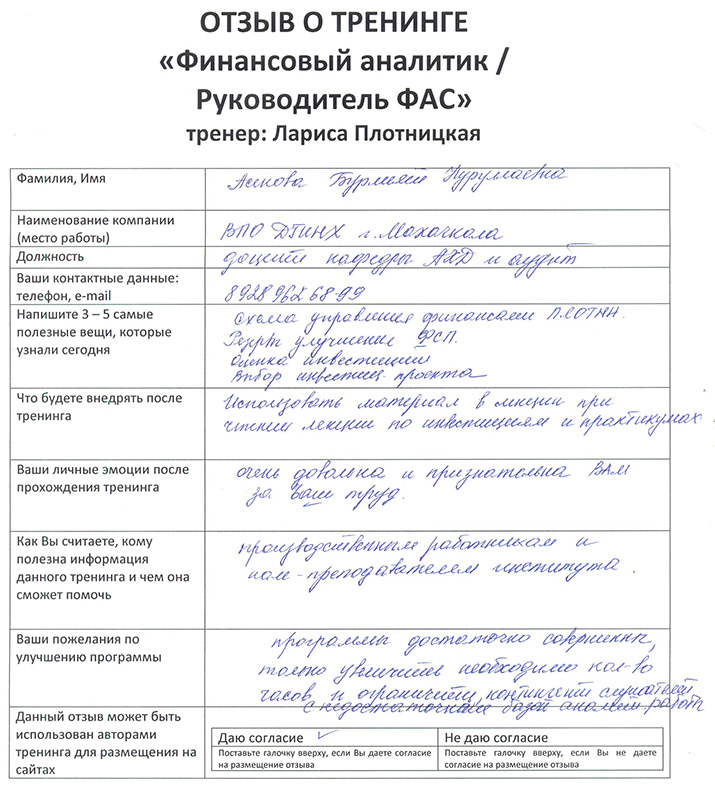 ОТЗЫВ О ТРЕНИНГЕ
«Финансовый аналитик /
Руководитель ФАС»
тренер: Лариса Плотницкая
Фамилия, Имя
Нурулаевна
Наименование компании
(место работы)
ВПО ДГИНХ г. Махачкала
Должность
доцент кафедры АХД и аудит
Ваши контактные данные:
телефон, e-mail
8928 962 68-99
Напишите 3 – 5 самые
полезные вещи, которые
узнали сегодня
Схема управления финансами
улучшение ФСП.
Оценка инвестиций
Выбор инвестиц. проекта
Что будете внедрять после
тренинга
Использовать материал в лекции при
чтении лекции по инвестициям и практикумах.
Ваши личные эмоции после
прохождения тренинга
очень довольна и признательна ВАМ
за Ваш труд.
Как Вы считаете, кому
полезна информация
данного тренинга и чем она
сможет помочь
производственным работникам и
нам-преподавателям института.
Ваши пожелания по
улучшению программы
программы достаточно совершенны,
только увеличить необходимо кол-во
часов и ограничить контингент слушателей
с недостаточной базой анализ работы
Данный отзыв может быть
использован авторами
тренинга для размещения на
сайтах
Даю согласие ✓
Не даю согласие
Поставьте галочку вверху, если Вы даете согласие
на размещение отзыва
Поставьте галочку вверху, если Вы не даете
согласие на размещение отзыва